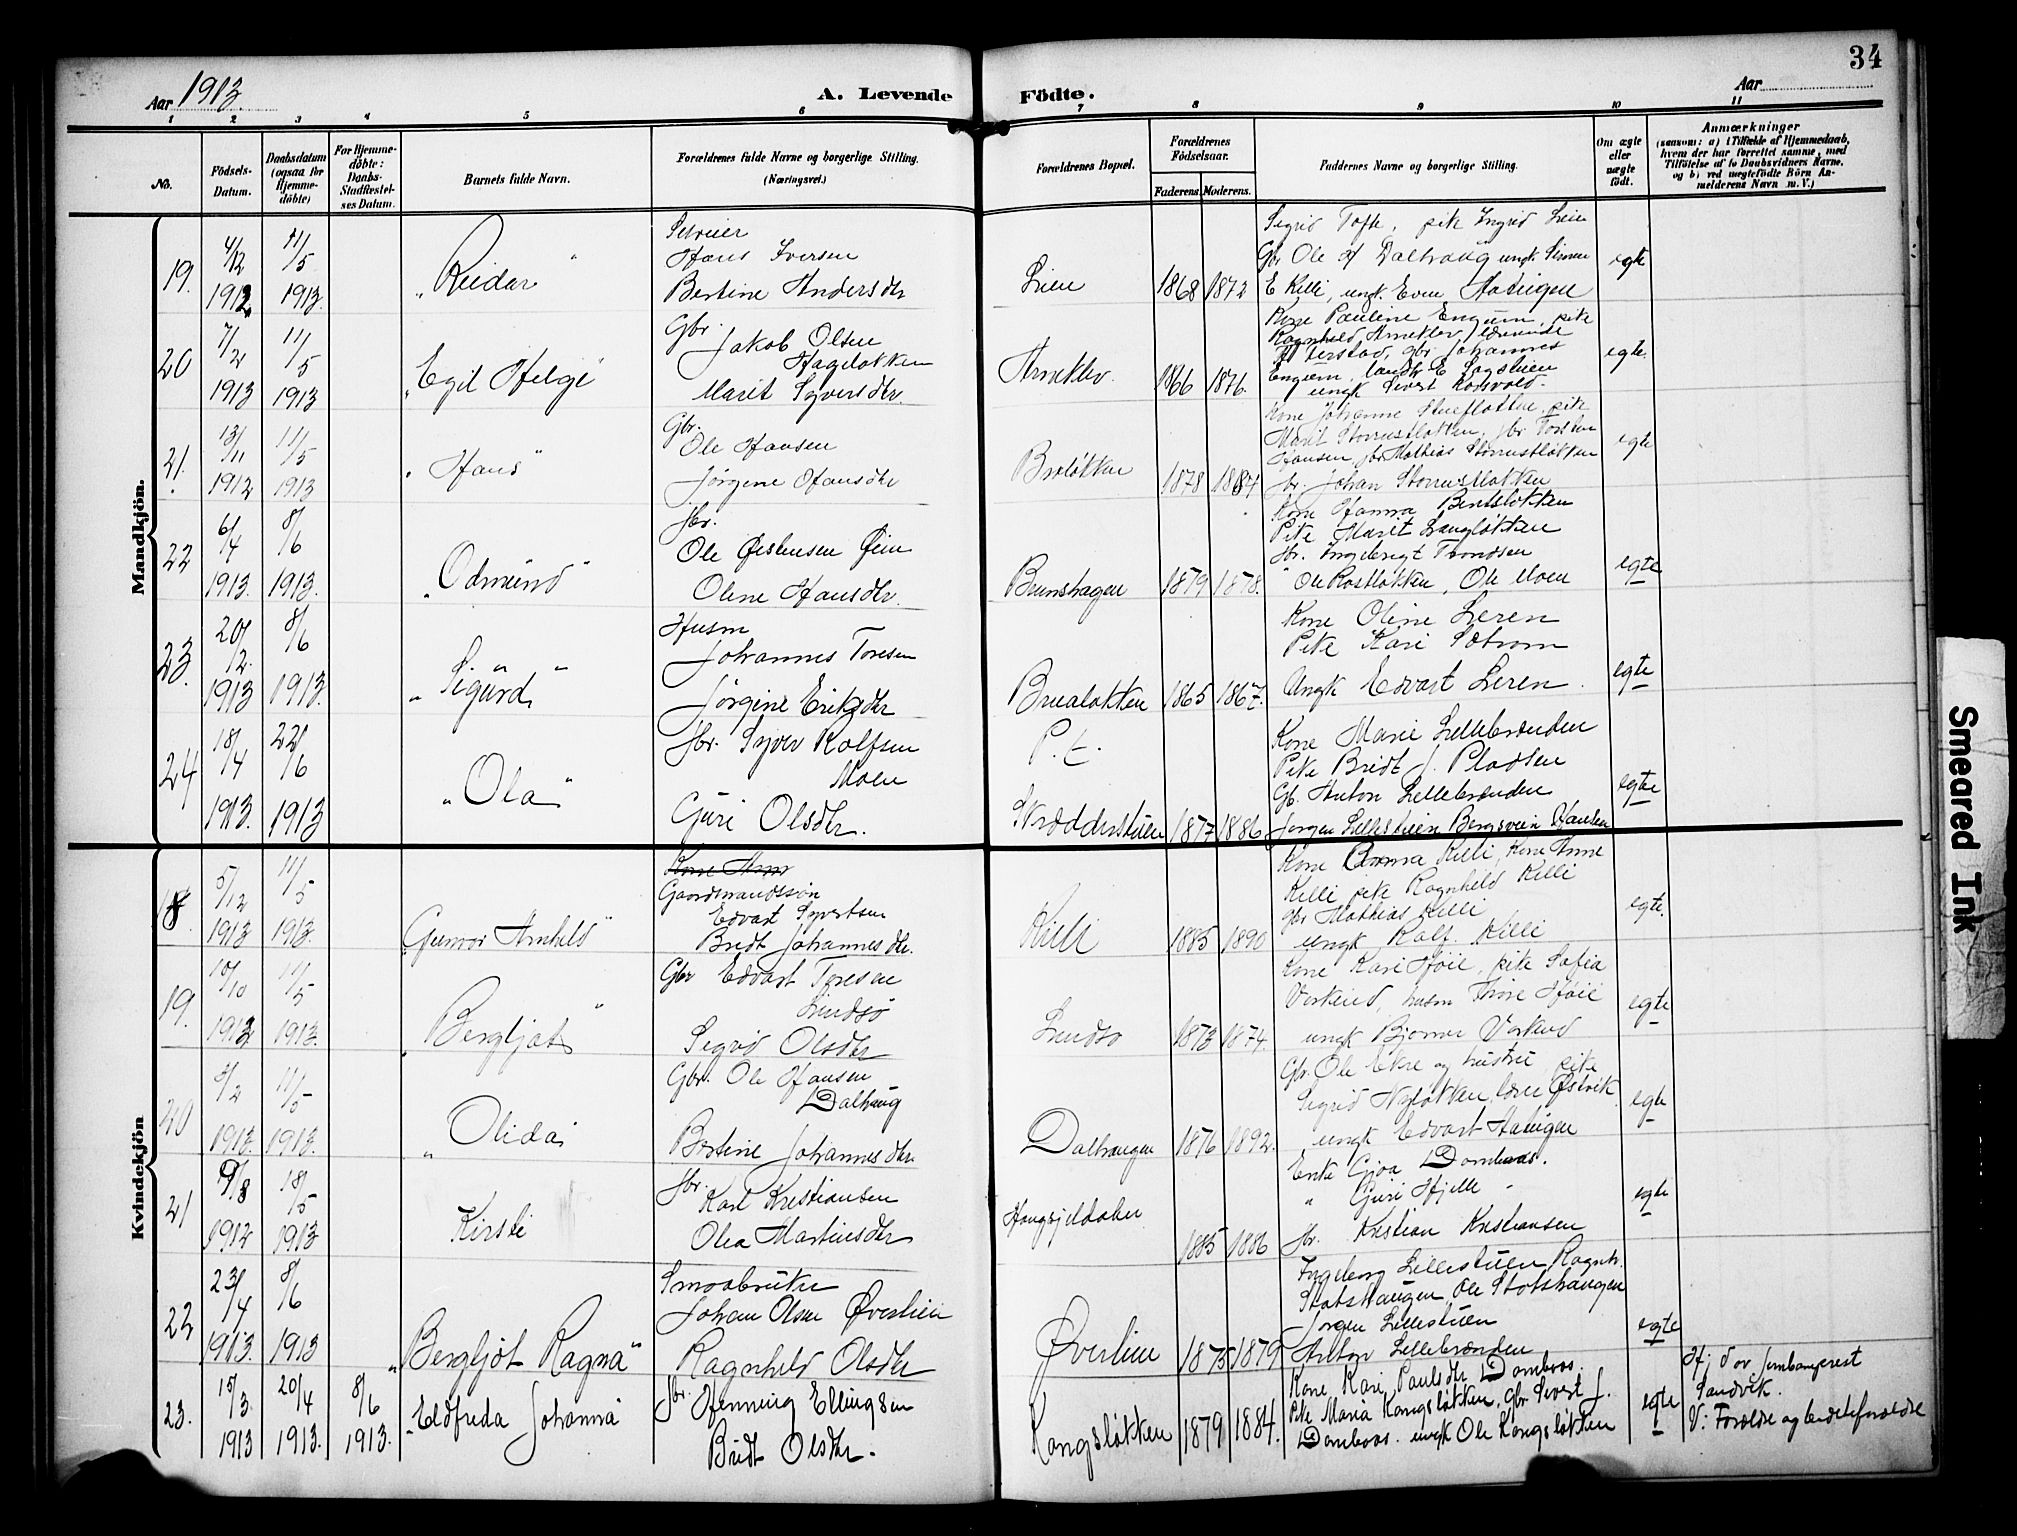 34
Aar 1913.
A. Levende Födte.
Aar
1 2 3 4 5 6 7 8 9 10 11
No.
Födsels-Datum.
Daabsdatum (ogsaa for Hjemme-döbte)
For Hjemme-döbte: Daabs-Stadfæstel-ses Datum.
Barnets fulde Navn.
Forældrenes fulde Navne og borgerlige Stilling. (Næringsvei.)
Forældrenes Bopæl.
Forældrenes Födselsaar.
Faderens. Moderens.
Faddernes Navne og borgerlige Stilling.
Om ægte eller uægte födt.
Anmærkninger
(saasom: a) i Tilfælde af Hjemmedaab, hvem der har forrettet samme, med Tilföielse af to Daabsvidners Navne, og b) ved uægtefödte Börn An-melderens Navn m. V.)
Mandkjön.
19. 4/12 1912. 11/5 1913. "Reidar"
Hans Iversen
Bertine Andersdtr
Lien 1868 1872
Sigrid Tofte, pike Ingrid Lien
Gbr Ole H Dalhaug ungk Simen
E Killi, ungk. Even Haugen
egte
20 7/2 1913 11/5 1913 "Egil Helge"
Gbr.
Jakob Olsen
Hageløkken
Marit Syversdtr.
Arneklev. 1866 1876.
Kone Pauline Engum, pike
Ragnhild Arneklev,
gbr Johannes
Engum,
ungk Sivert
egte.
21. 13/11 1912 11/5 1913 "Hans"
Gbr.
Ole Hansen
Jørgine Hansdtr
Breløkken 1878 1884
Kone Johanne pike
Marit
Hansen, gbr Mathias
gbr. Johan
egte
22 6/4 1913 8/6 1913. "Odmund"
gbr.
Ole Østensen Øien
Oline Hansdtr.
Brunshagen 1879 1878.
Kone Hanna Bentsløkken
Pike Marit Langløkken
gbr. Ingebrigt Trondsen
" Ole Rostløkken, Ole Moen
egte
23. 20/12. 1913 8/6 1913. "Sigurd"
Husm
Johannes Toresen
Jørgine Eriksdtr
Brualøkken 1865 1867.
Kone Oline Leren
Pike Kari Sætrom
Ungk Edvart Leren.
egte
24 18/4 1913. 22/6 1913 "Ola"
gbr. Syver Rolfsen
Moen
Guri Olsdtr.
P. t.
Skræddderstuen 1877 1886
Kone Marie Lillebrænden
Pike Bridt J. Pladsen
Gb. Anton Lillebrænden
Jørgen Lillestuen Bergsvein Hansen
egte
Kvindekjön
18. 5/12 1913 11/5 1913. "Gunvor Arnhild"
Gaardmandssøn
Edvart Syvertsen
Bridt Johannesdtr.
Killi 1885 1890
Kone Emma Killi, Kone Anne
Killi pike Ragnhild Killi
gbr Mathias Killi
ungk Rolf Killi
egte.
19. 10/10 1912 11/5 1913. "Bergljot"
Gbr Edvart Toresen
Lindsø
Sigrid Olsdtr
Lindsø 1873 1874.
Kone Kari Høie, pike Sofia
husm Tore Høie
ungk Bjarne
egte
20 3/2 1913. 11/5 1913. "Olida"
Gbr. Ole Hansen
Dalhaug
Bertine Johannesdtr
Dalhaugen 1876 1892.
Gbr. Ole Ekre og hustru pike
Sigrid Nyløkken, lærer Østvik
ungk Edvart Haugen
egte
21 19/8 1912 18/5 1913 Kirsti
gbr.
Karl Kristiansen
Olea Martinsdtr
1885 1886
Enke Gjøa Dombaas.
" Guri Hjelle
gbr. Kristian Kristiansen
egte
22 23/4 1913. 8/6 1913 "Bergljot Ragna"
Smaabruker
Johan Olsen Øverlien
Ragnhild Olsdtr
Øverlien 1875 1879
Ingeborg Lillestuen Ragnh.
Slotshaugen, Ole Slotshaugen
Jørgen Lillestuen
Anton Lillebrænden
egte
23. 15/3 1913 20/4 1913. 8/6 1913. "Eldfrida Johanna"
gbr. Henning Ellingsen
Bridt Olsdtr.
Kongsløkken 1879 1884.
Kone Kari Paulsdtr Dombaas.
Pike Maria Kongsløkken, gbr. Sivert J.
Dombaas. ungk Ole Kongsløkken
egte
Hj d av
Sandvik.
V: Forældre og bedsteforældre
Smeared Ink